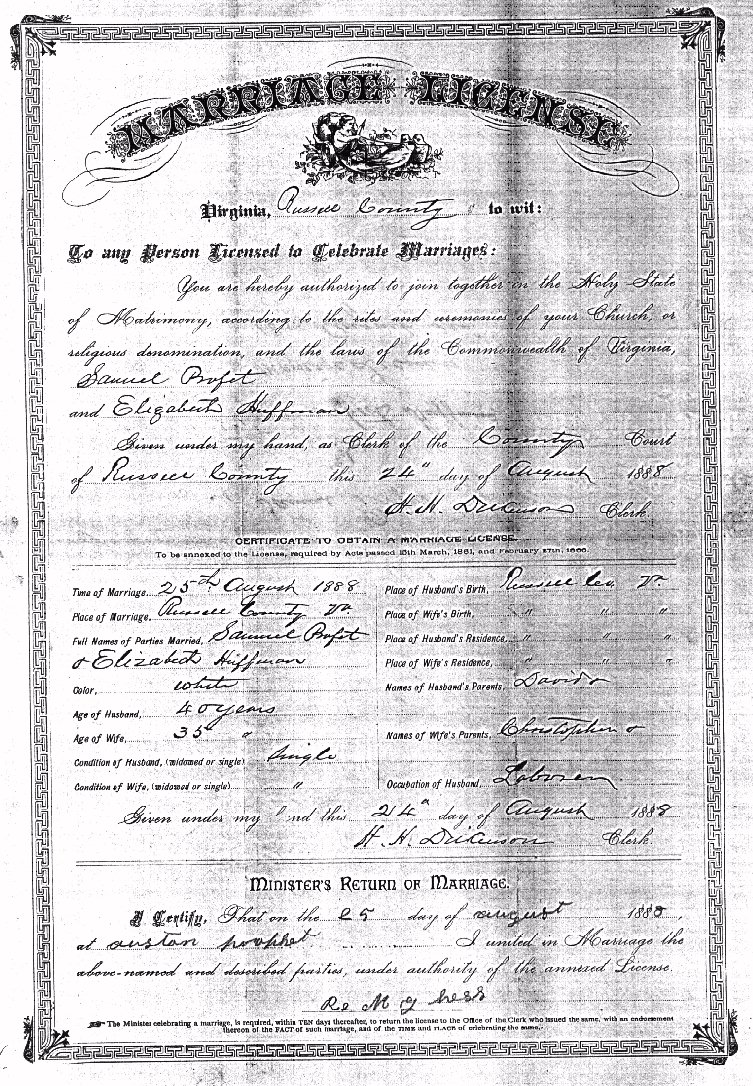 MARRIAGE LICENSE
Virginia, Russell County to wit:
To any Person Licensed to Celebrate Marriages:
You are hereby authorized to join together in the Holy State
of Matrimony, according to the rites and ceremonies of your Church, or
religious denomination, and the laws of the Commonwealth of Virginia,
Samuel Profit
and Elizabeth Huffman
Given under my hand, as Clerk of the County Court
of Russell County this 24" day of August 1888
H. H. Dickenson Clerk
CERTIFICATE TO OBTAIN A MARRIAGE LICENSE.
To be annexed to the License, required by Acts passed 15th March, 1861, and February 27th, 1866.
Time of Marriage, 25th August 1888
Place of Marriage, Russell County Va
Full Names of Parties Married, Samuel Profit
& Elizabeth Huffman
Color, white
Age of Husband, 40 years
Age of Wife, 35 "
Condition of Husband, (widowed or single) Single
Condition of Wife, (widowed or single) "
Place of Husband's Birth, Russell Co. Va.
Place of Wife's Birth, " " "
Place of Husband's Residence, " " "
Place of Wife's Residence, " " "
Names of Husband's Parents, David &
Names of Wife's Parents, Christopher &
Occupation of Husband, Laborer
Given under my hand this 24" day of August 1888
H. H. Dickenson Clerk
MINISTER'S RETURN OF MARRIAGE.
I Certify, That on the 25 day of august 1888,
at austan prophet I united in Marriage the
above-named and described parties, under authority of the annexed License.
The Minister celebrating a marriage, is required, within TEN days thereafter, to return the license to the Office of the Clerk who issued the same, with an endorsement
thereon of the FACT of such marriage, and of the TIME and PLACE of celebrating the same.